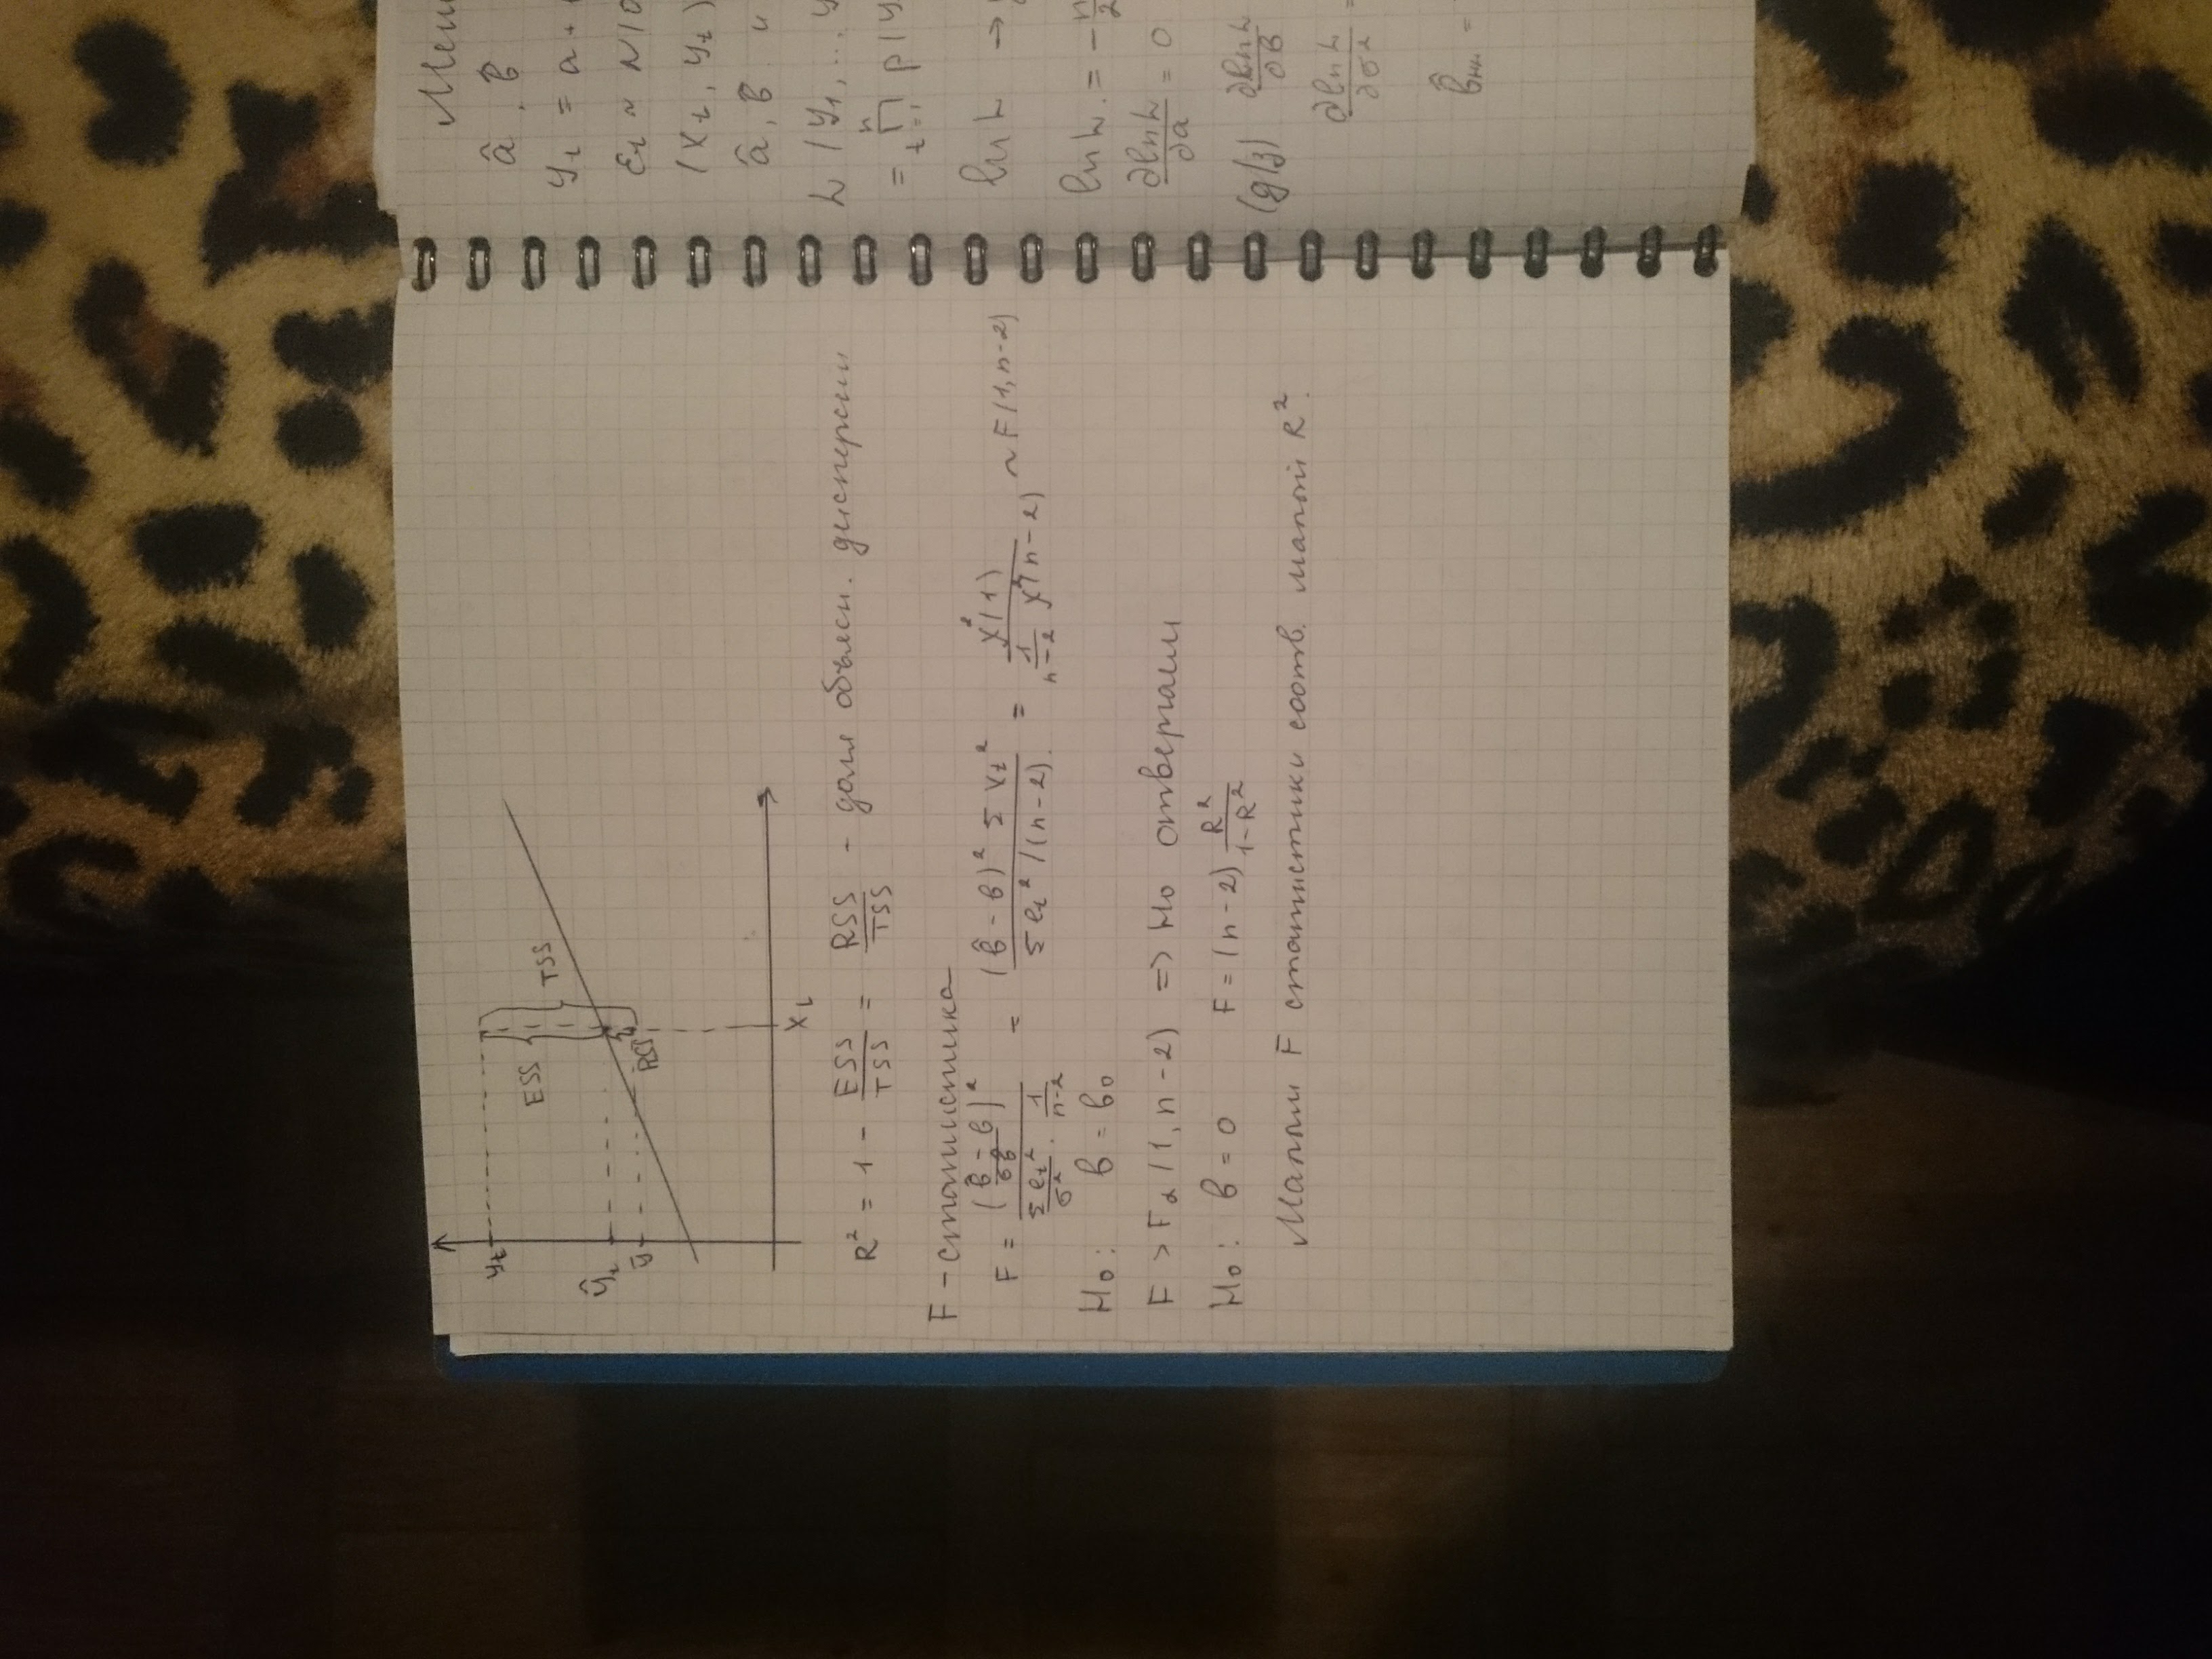 yₜ
ŷₜ
ȳ
ESS
TSS
RSS
xₜ
R² = 1 - ESS/TSS = RSS/TSS - доля объясн. дисперсии
F - статистика
F = ((b̂ - b)/σb)² / (Σeₜ²/σ² · 1/(n-2)) = (b̂ - b)² Σxₜ² / (Σeₜ²/(n-2)) = χ²(1) / (1/(n-2) χ²(n-2)) ~ F(1, n-2)
H₀: b = b₀
F > Fα(1, n-2) => H₀ отвергаем
H₀: b = 0 F = (n-2) R²/(1-R²)
Малым F статистики соотв. малой R².
â, b̂
yₜ = a +
εₜ ~ N(0
(xₜ, yₜ)
â, b̂ и
L(y₁, ... y
= ∏ₜ₌₁ⁿ p(y
ln L →
ln L = - n/2
∂lnL/∂a = 0
(д/з) ∂lnL/∂b
∂lnL/∂σ² =
b̂нп =